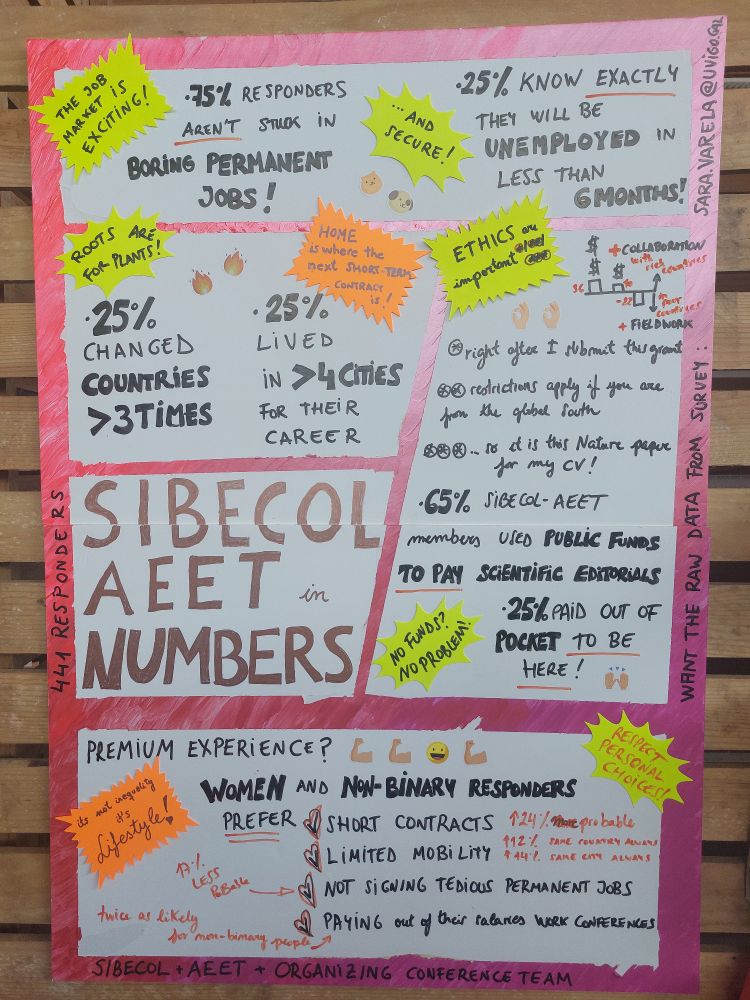 THE JOB
MARKET IS
EXCITING!
·75% RESPONDERS
AREN'T STUCK IN
BORING PERMANENT
JOBS!
...AND
SECURE!
·25% KNOW EXACTLY
THEY WILL BE
UNEMPLOYED IN
LESS THAN
6 MONTHS!
SARA.VARELA@UVIGO.GAL
ROOTS ARE
FOR PLANTS!
·25%
CHANGED
COUNTRIES
>3 TIMES
HOME
is where the
next SHORT-TERM
CONTRACT
is!
·25%
LIVED
IN >4 CITIES
FOR THEIR
CAREER
ETHICS are
important
$
$ $
+ COLLABORATION
with rich countries
36
10
-22
in poor countries
+ FIELDWORK
right after I submit this grant
restrictions apply if you are
from the global South
... so it is this Nature paper
for my CV!
·65% SIBECOL-AEET
members USED PUBLIC FUNDS
TO PAY SCIENTIFIC EDITORIALS
NO FUNDS?
NO PROBLEM!
·25% PAID OUT OF
POCKET TO BE
HERE!
WANT THE RAW DATA FROM SURVEY:
441 RESPONDERS
SIBECOL
AEET in
NUMBERS
PREMIUM EXPERIENCE?
RESPECT
PERSONAL
CHOICES!
its not inequality
it's
Lifestyle!
WOMEN AND NON-BINARY RESPONDERS
PREFER
SHORT CONTRACTS ↑24% probable
LIMITED MOBILITY ↑12% SAME COUNTRY ALWAYS
↑44% SAME CITY ALWAYS
17%
LESS
PoBable
NOT SIGNING TEDIOUS PERMANENT JOBS
twice as likely
for non-binary people
PAYING out of their salaries WORK CONFERENCES
SIBECOL + AEET + ORGANIZING CONFERENCE TEAM